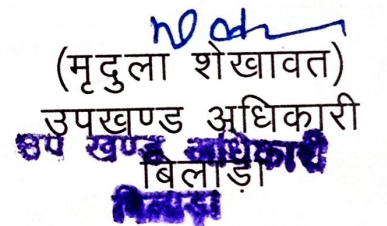 (मृदुला शेखावत)
उपखण्ड अधिकारी
उप खण्ड अधिकारी
बिलाड़ा
बिलाड़ा